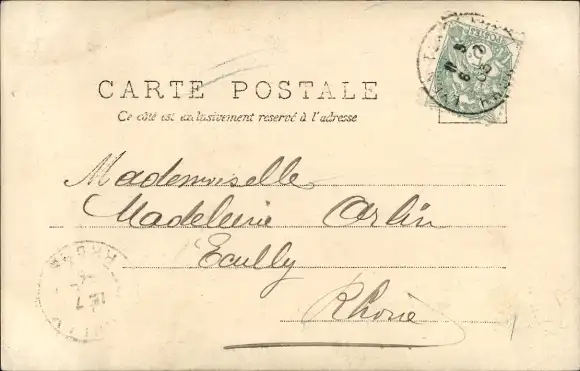 CARTE POSTALE
Ce côté est exclusivement réservé à l'adresse
Mademoiselle
Madeleine Arlin
Ecully
Rhône
RHONE